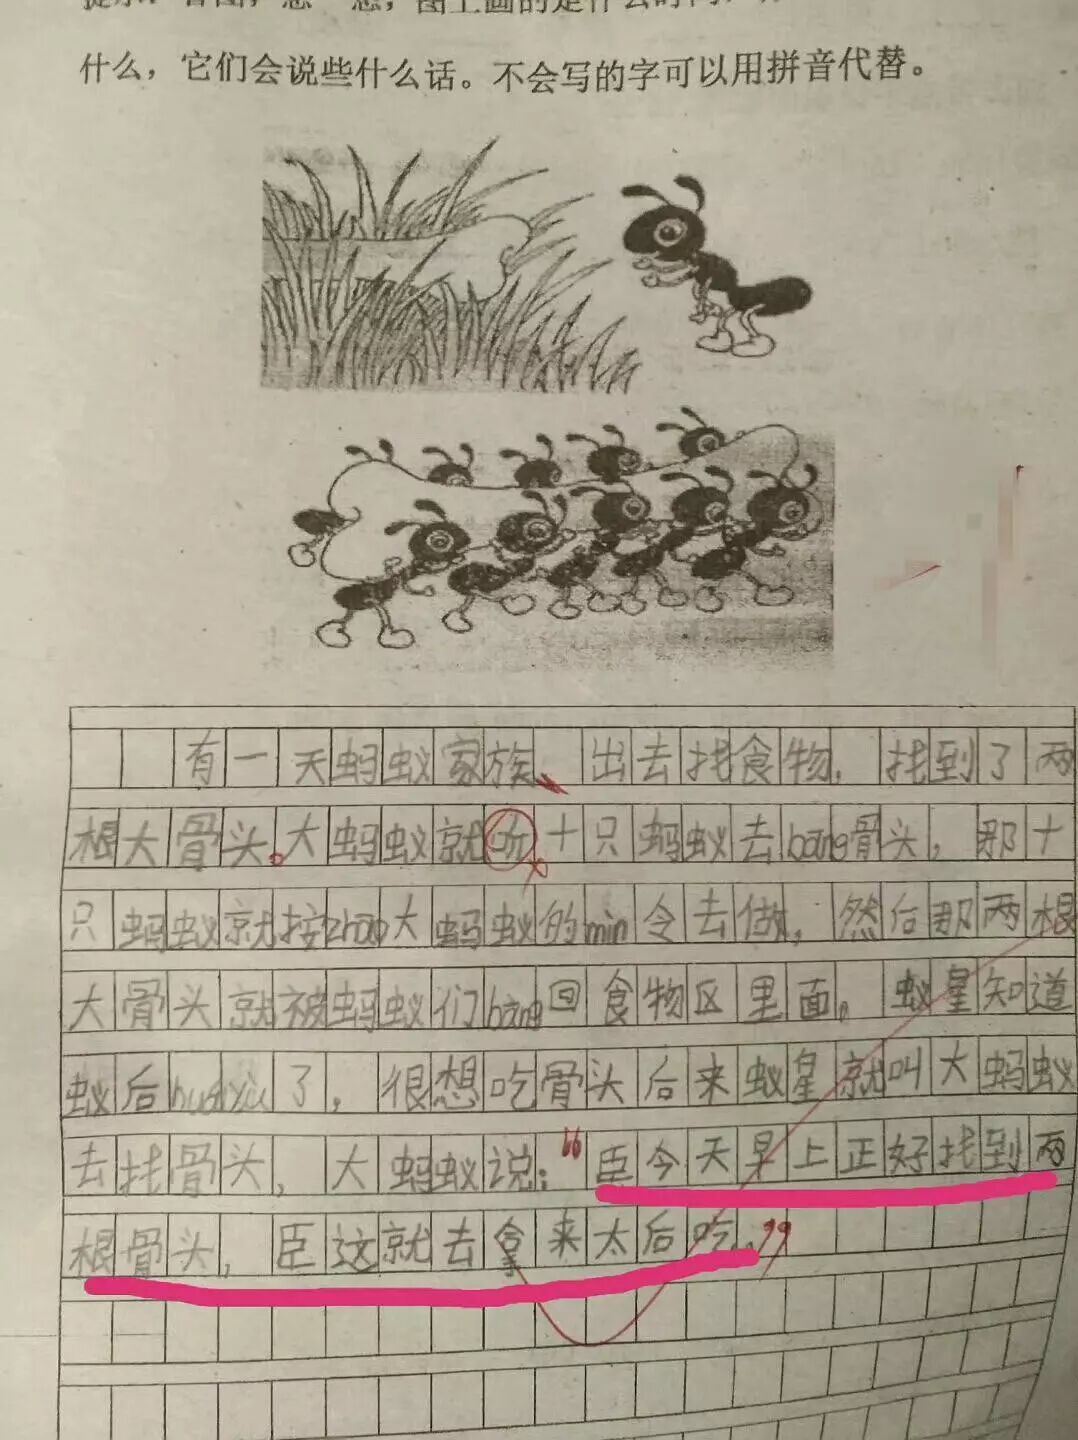 什么，它们会说些什么话。不会写的字可以用拼音代替。
有一天蚂蚁家族、出去找食物，找到了两
根大骨头。大蚂蚁就吩十只蚂蚁去bāng骨头，那十
只蚂蚁就按zhào大蚂蚁的min令去做，然后那两根
大骨头就被蚂蚁们bāng回食物区里面。蚁皇知道
蚁后huáiyùn了，很想吃骨头后来蚁皇就叫大蚂蚁
去找骨头，大蚂蚁说：“臣今天早上正好找到两
根骨头，臣这就去拿来太后吃。”